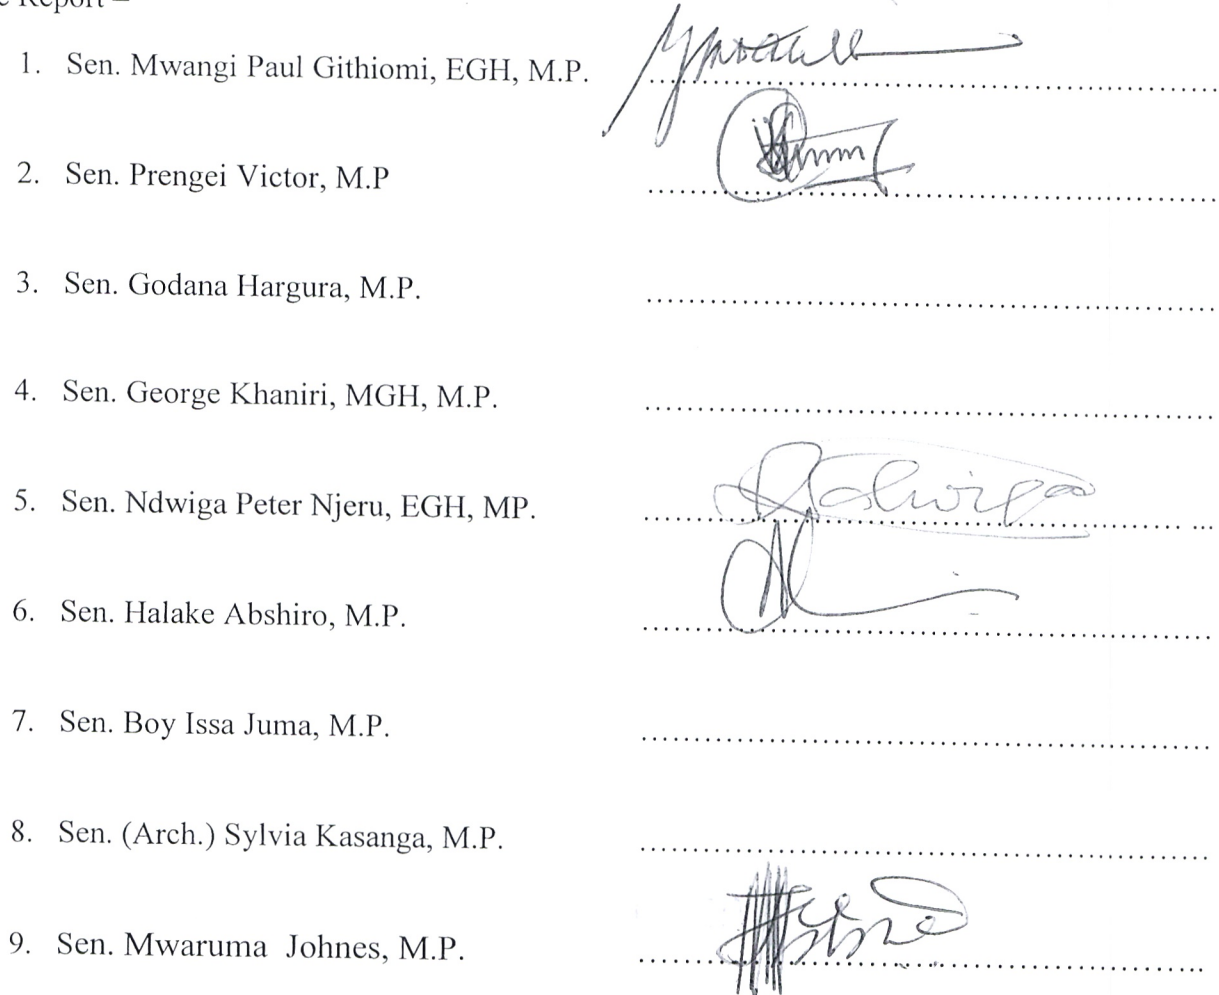 Report –
1. Sen. Mwangi Paul Githiomi, EGH, M.P. ........................................
2. Sen. Prengei Victor, M.P ........................................
3. Sen. Godana Hargura, M.P. ........................................
4. Sen. George Khaniri, MGH, M.P. ........................................
5. Sen. Ndwiga Peter Njeru, EGH, MP. ........................................
6. Sen. Halake Abshiro, M.P. ........................................
7. Sen. Boy Issa Juma, M.P. ........................................
8. Sen. (Arch.) Sylvia Kasanga, M.P. ........................................
9. Sen. Mwaruma Johnes, M.P. ........................................